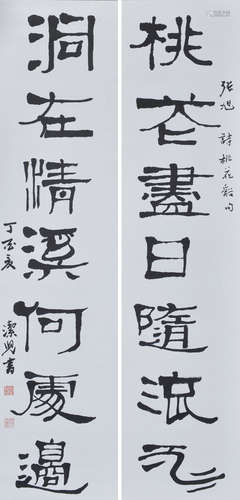 桃花盡日隨流水
張旭詩桃花谿句
洞在清溪何處邊
丁酉夏